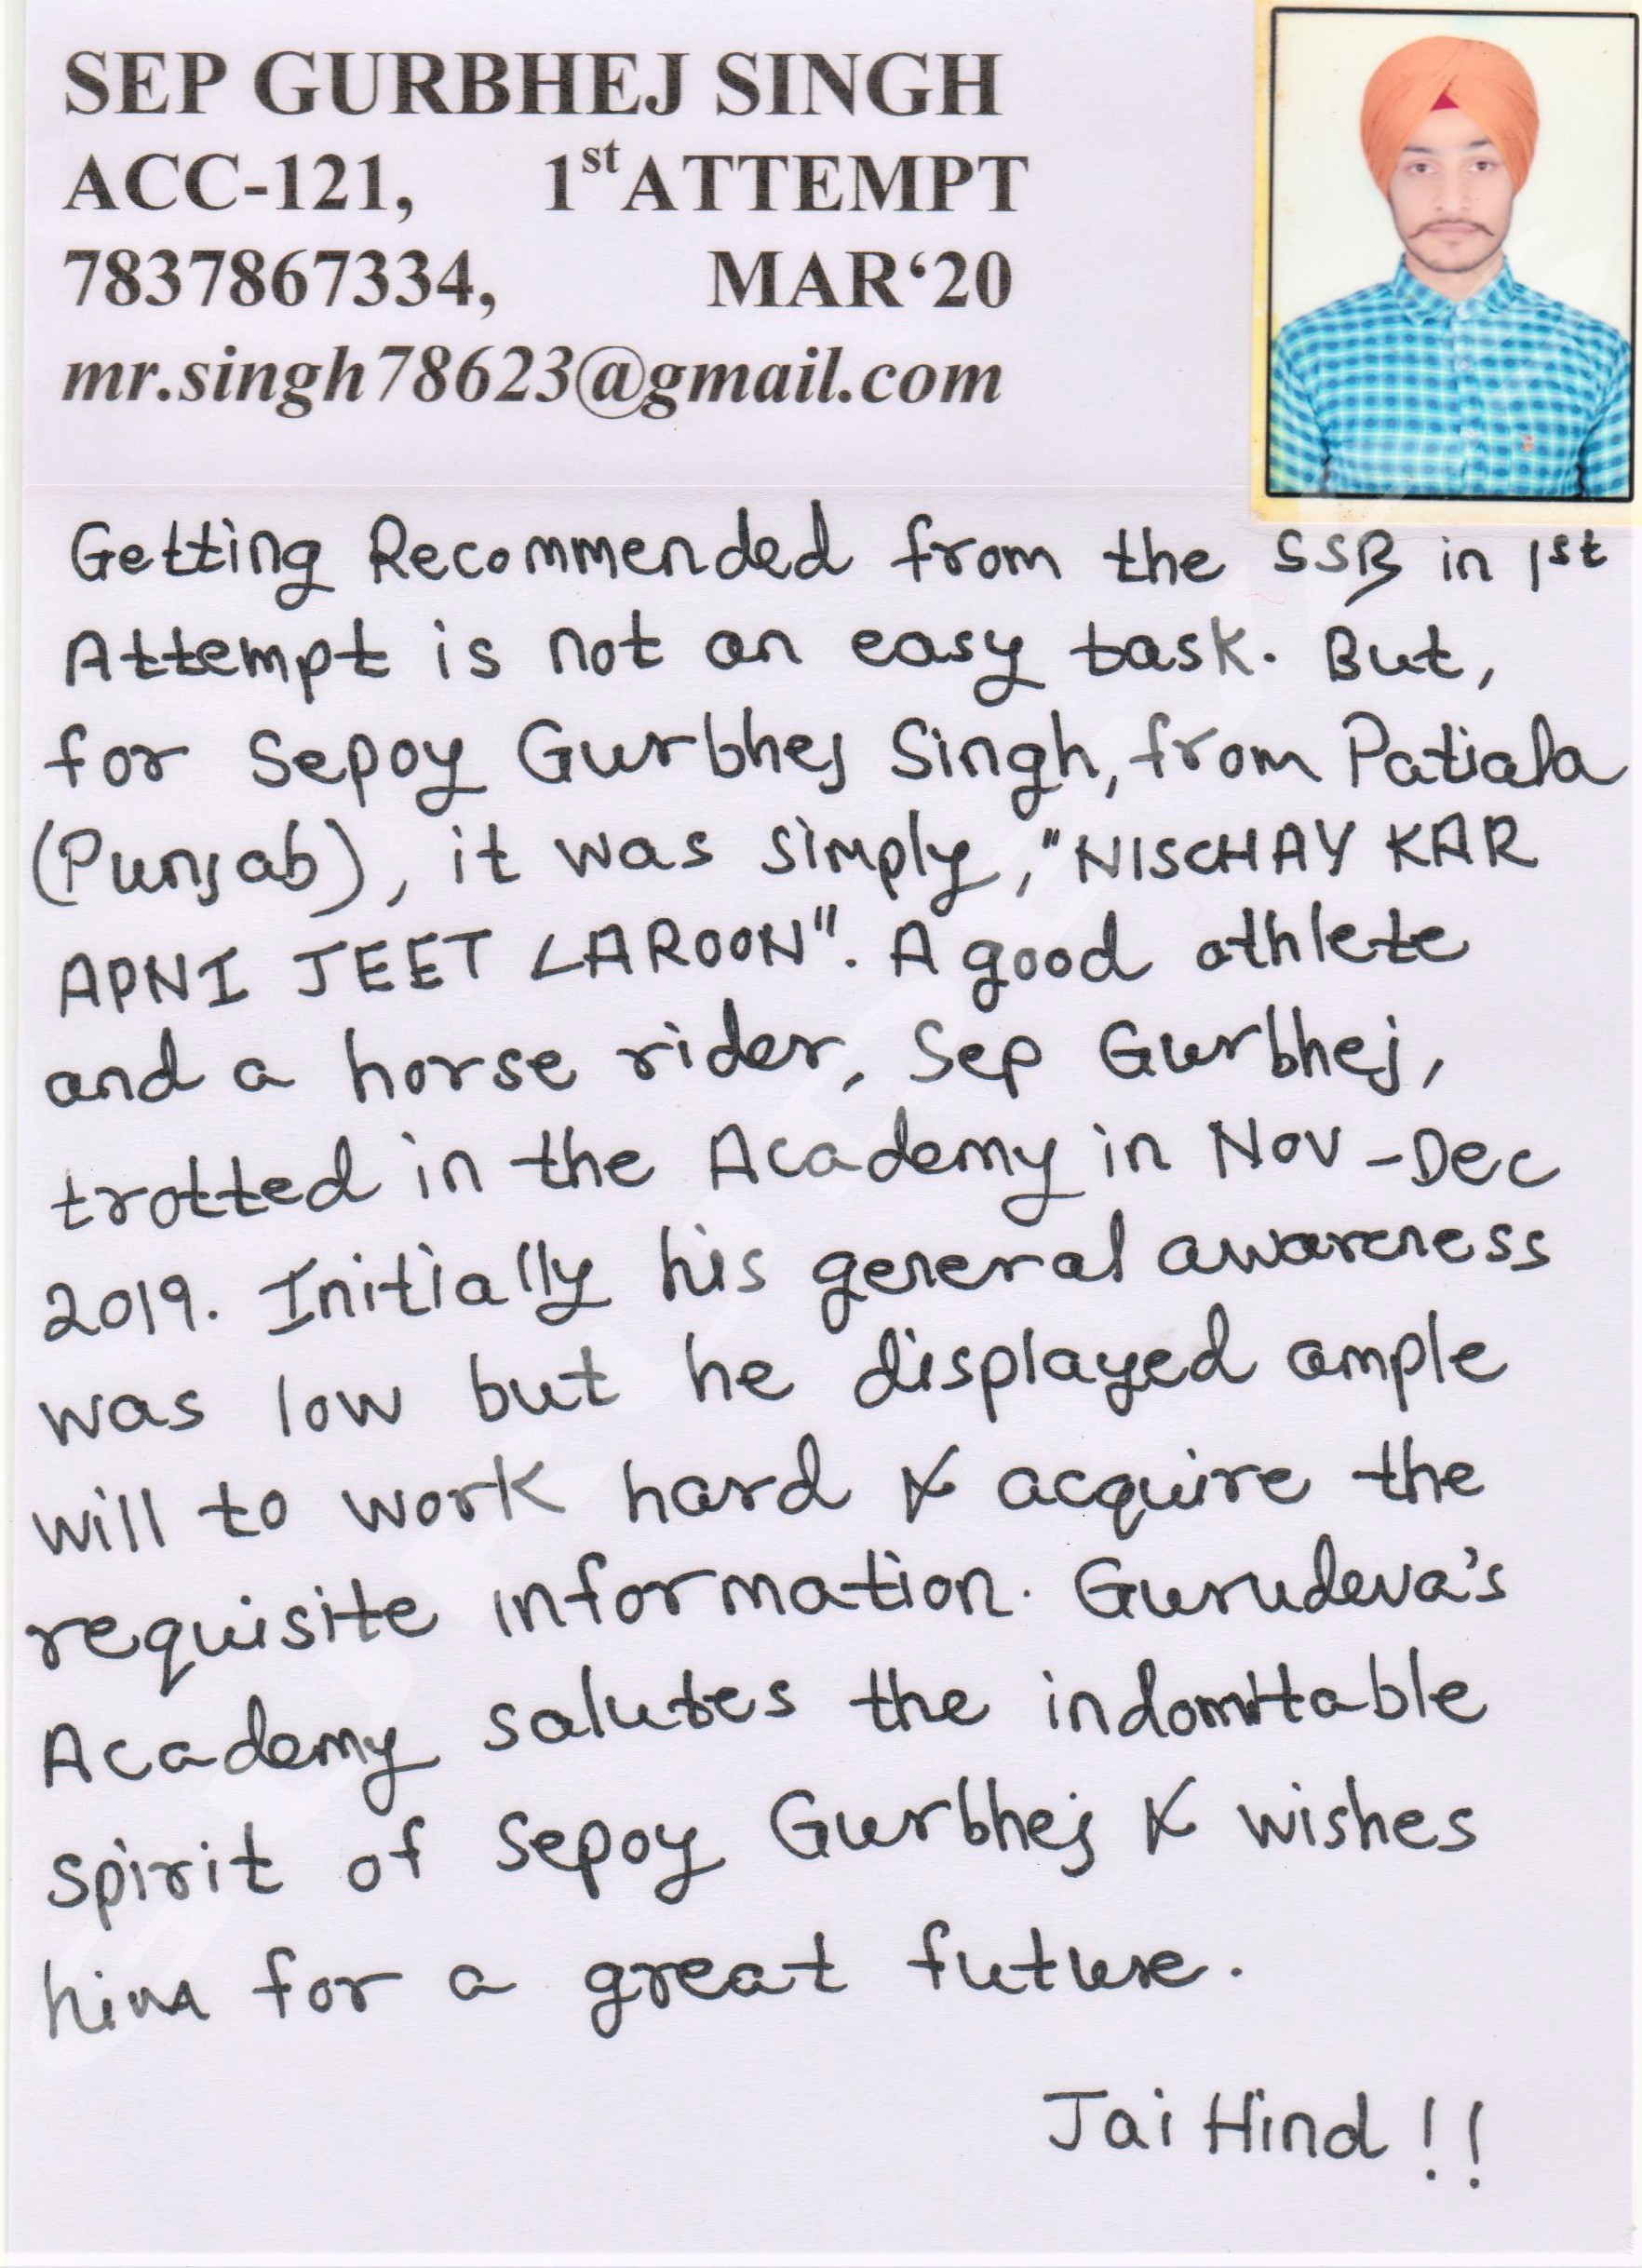 SEP GURBHEJ SINGH
ACC-121, 1st ATTEMPT
7837867334, MAR‘20
mr.singh78623@gmail.com
Getting Recommended from the SSB in 1st
Attempt is not an easy task. But,
for Sepoy Gurbhej Singh, from Patiala
(Punjab), it was simply, "NISCHAY KAR
APNI JEET LAROON". A good athlete
and a horse rider, Sep Gurbhej,
trotted in the Academy in Nov-Dec
2019. Initially his general awareness
was low but he displayed ample
will to work hard & acquire the
requisite information. Gurudeva's
Academy salutes the indomitable
spirit of Sepoy Gurbhej & wishes
him for a great future.
Jai Hind !!